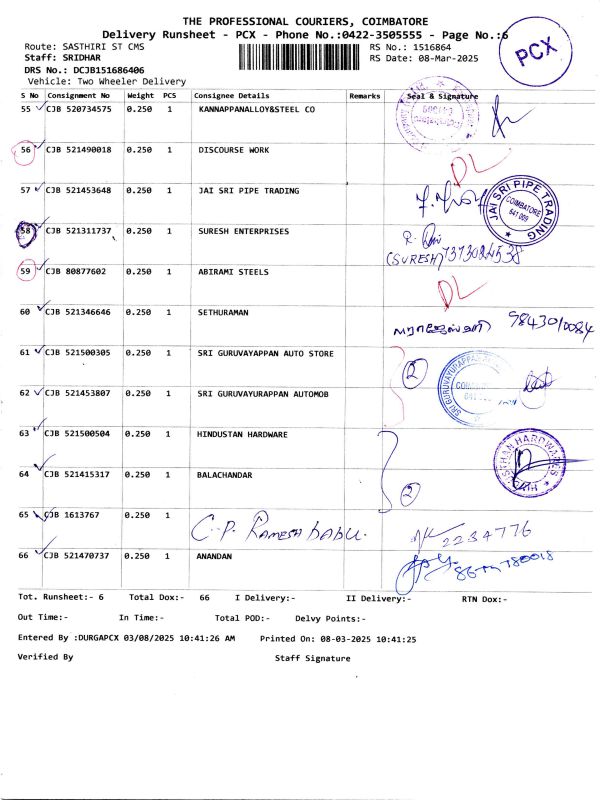 THE PROFESSIONAL COURIERS, COIMBATORE
Delivery Runsheet - PCX - Phone No.:0422-3505555 - Page No.:6
PCX
Route: SASTHIRI ST CMS
RS No.: 1516864
Staff: SRIDHAR
RS Date: 08-Mar-2025
DRS No.: DCJB151686406
Vehicle: Two Wheeler Delivery
S No Consignment No Weight PCS Consignee Details Remarks Seal & Signature
55 CJB 520734575 0.250 1 KANNAPPANALLOY&STEEL CO
56 CJB 521490018 0.250 1 DISCOURSE WORK DL
57 CJB 521453648 0.250 1 JAI SRI PIPE TRADING
JAI SRI PIPE TRADING
COIMBATORE
641 009
58 CJB 521311737 0.250 1 SURESH ENTERPRISES
(SURESH) 7373024538
59 CJB 80877602 0.250 1 ABIRAMI STEELS DL
60 CJB 521346646 0.250 1 SETHURAMAN
9843010084
61 CJB 521500305 0.250 1 SRI GURUVAYAPPAN AUTO STORE
2
62 CJB 521453807 0.250 1 SRI GURUVAYURAPPAN AUTOMOB
63 CJB 521500504 0.250 1 HINDUSTAN HARDWARE
64 CJB 521415317 0.250 1 BALACHANDAR
2
65 CJB 1613767 0.250 1 C.P. Ramesh babu. 2234776
66 CJB 521470737 0.250 1 ANANDAN
Tot. Runsheet:- 6 Total Dox:- 66 I Delivery:- II Delivery:- RTN Dox:-
Out Time:- In Time:- Total POD:- Delvy Points:-
Entered By :DURGAPCX 03/08/2025 10:41:26 AM Printed On: 08-03-2025 10:41:25
Verified By Staff Signature